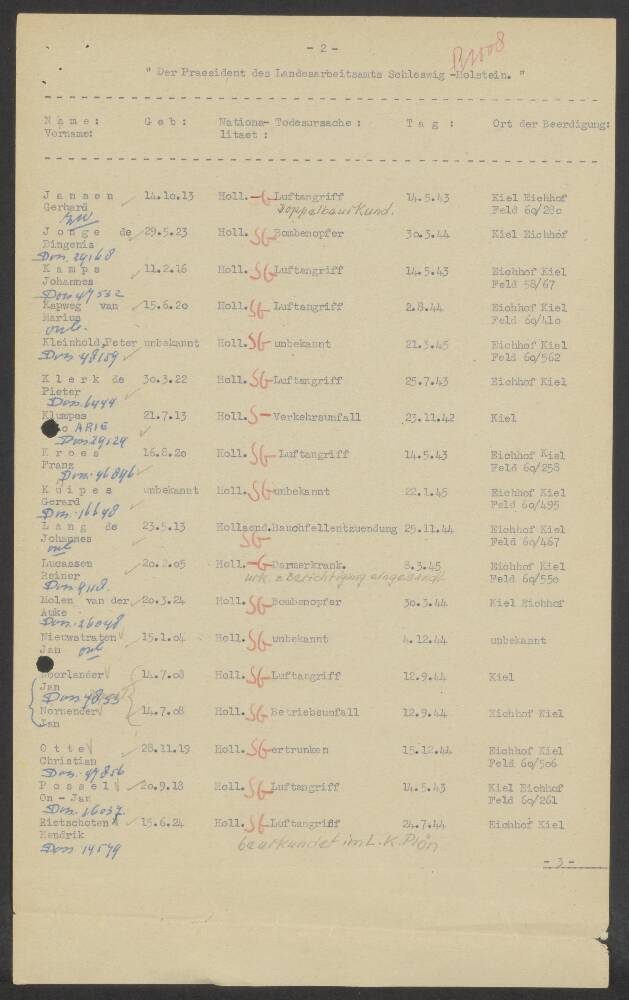 - 2 -
B1008
" Der Praesident des Landesarbeitsamts Schleswig -Holstein. "
Name: Geb: Nationa- Todesursache : Tag : Ort der Beerdigung:
Vorname: litaet :
Jansen 14.10.13 Holl. G Luftangriff 14.5.43 Kiel Eichhof
Gerhard Doppelbeurkund. Feld 60/280
Jonge de 29.5.23 Holl. SG Bombenopfer 30.3.44 Kiel Eichhof
Dingenis
Don. 29168
Kamps 11.2.16 Holl. SG Luftangriff 14.5.43 Eichhof Kiel
Johannes Feld 58/67
Don 47552
Kapweg van 15.6.20 Holl. SG Luftangriff 2.8.44 Eichhof Kiel
Marius Feld 60/410
Kleinhold,Peter unbekannt Holl. SG unbekannt 21.3.45 Eichhof Kiel
Don 48159 Feld 60/562
Klerk de 30.3.22 Holl. SG Luftangriff 25.7.43 Eichhof Kiel
Pieter
Don. 6444
Klumpes 21.7.13 Holl. S Verkehrsunfall 23.11.42 Kiel
o ARIE
Don 29124
Kroes 16.8.20 Holl. SG Luftangriff 14.5.43 Eichhof Kiel
Franz Feld 60/258
Don. 46846
Kuipes unbekannt Holl. SG unbekannt 22.1.45 Eichhof Kiel
Gerard Feld 60/495
Don. 16648
Lang de 23.5.13 Hollaend. Bauchfellentzuendung 29.11.44 Eichhof Kiel
Johannes SG Feld 60/467
Lucassen 20.2.05 Holl. G Darmerkrank. 8.3.45 Eichhof Kiel
Reiner Urk. z Berichtigung eingesandt Feld 60/550
Don 9118.
Molen van der 20.3.24 Holl. SG Bombenopfer 30.3.44 Kiel Eichhof
Auke
Don. 26048
Nieuwstraten 15.1.04 Holl. SG unbekannt 4.12.44 unbekannt
Jan
Noorlander 14.7.08 Holl. SG Luftangriff 12.9.44 Kiel
Jan
Don 7853
Nornender 14.7.08 Holl. SG Betriebsunfall 12.9.44 Eichhof Kiel
Jan
Otte 28.11.19 Holl. SG ertrunken 15.12.44 Eichhof Kiel
Christian Feld 60/506
Don. 49856
Possel 20.9.18 Holl. SG Luftangriff 14.5.43 Kiel Eichhof
On - Jan Feld 60/261
Don. 16037
Rietschoten 15.6.24 Holl. SG Luftangriff 24.7.44 Eichhof Kiel
Hendrik beurkundet im L.K. Plön
Don 14579
- 3 -